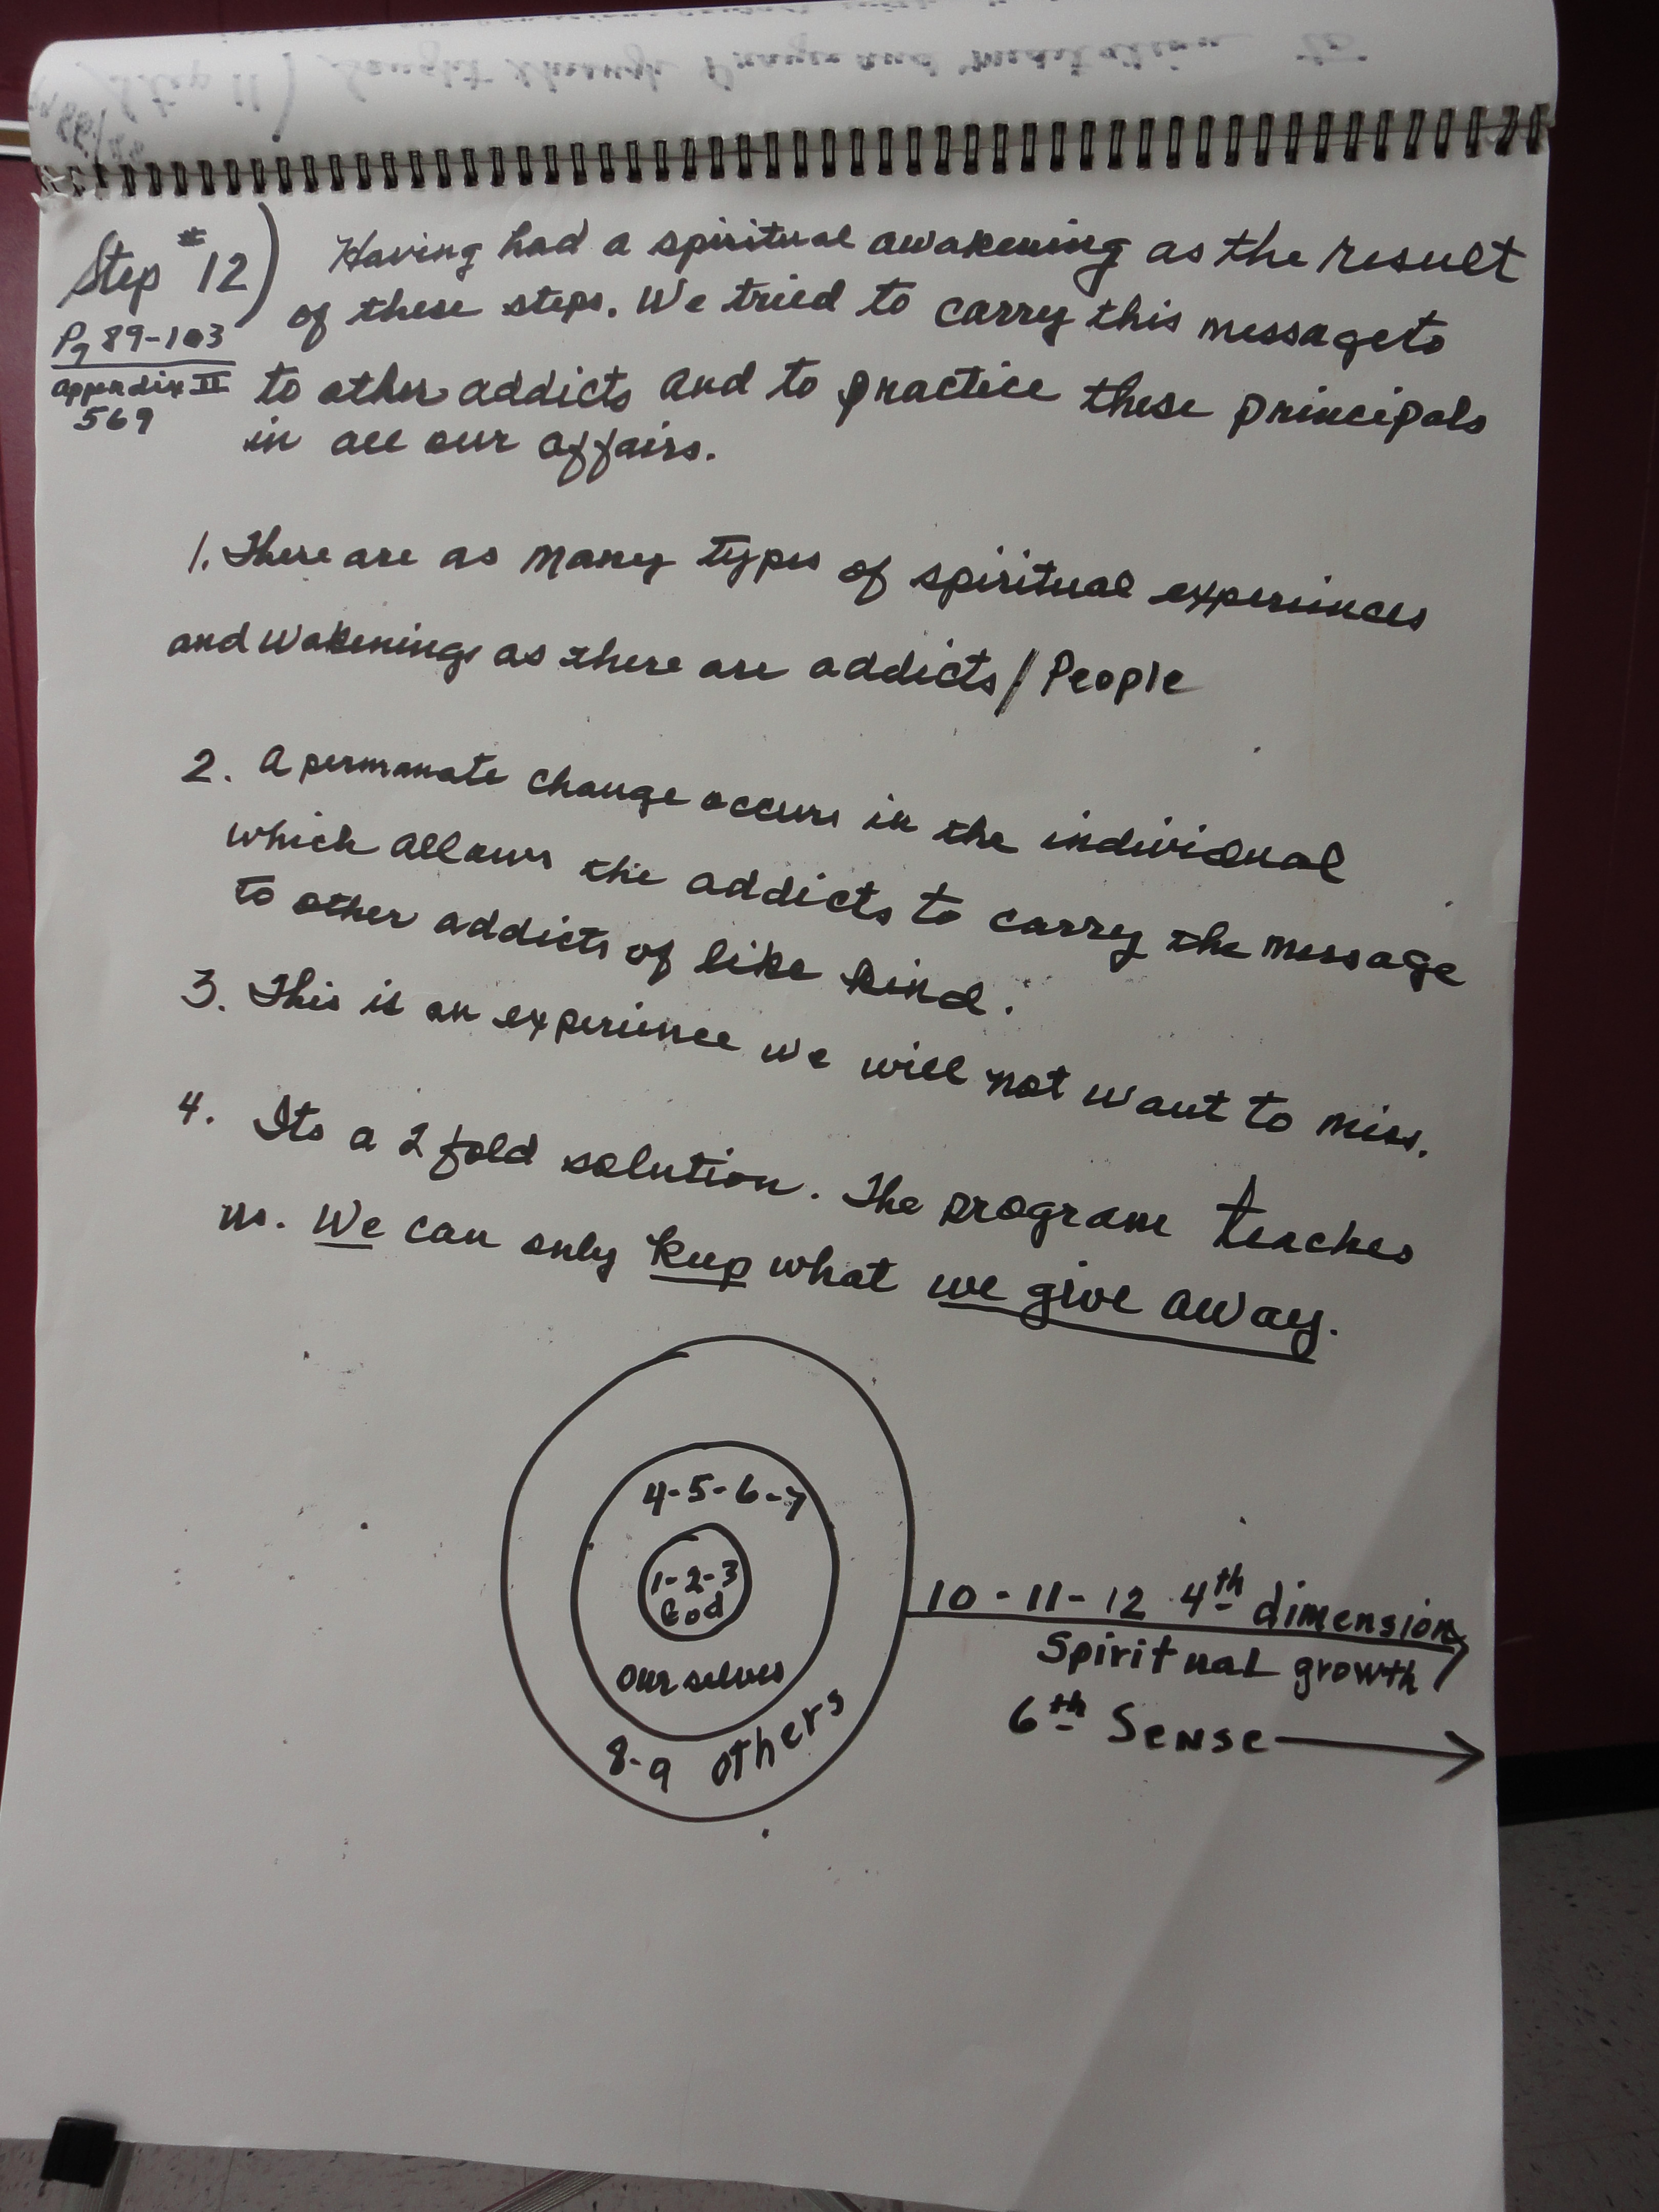 Step #12) Having had a spiritual awakening as the result
of these steps. We tried to carry this message to
Pg 89-103
to other addicts and to practice these principals
appendix II
569
in all our affairs.
1. There are as many types of spiritual experiences
and wakenings as there are addicts / People
2. A permanate change occurs in the individual
which allows the addicts to carry the message
to other addicts of like kind.
3. This is an experience we will not want to miss.
4. Its a 2 fold solution. The program teaches
us. We can only keep what we give away.
4-5-6-7
1-2-3
God
Our selves
8-9 others
10-11-12 4th dimension
Spiritual growth
6th Sense